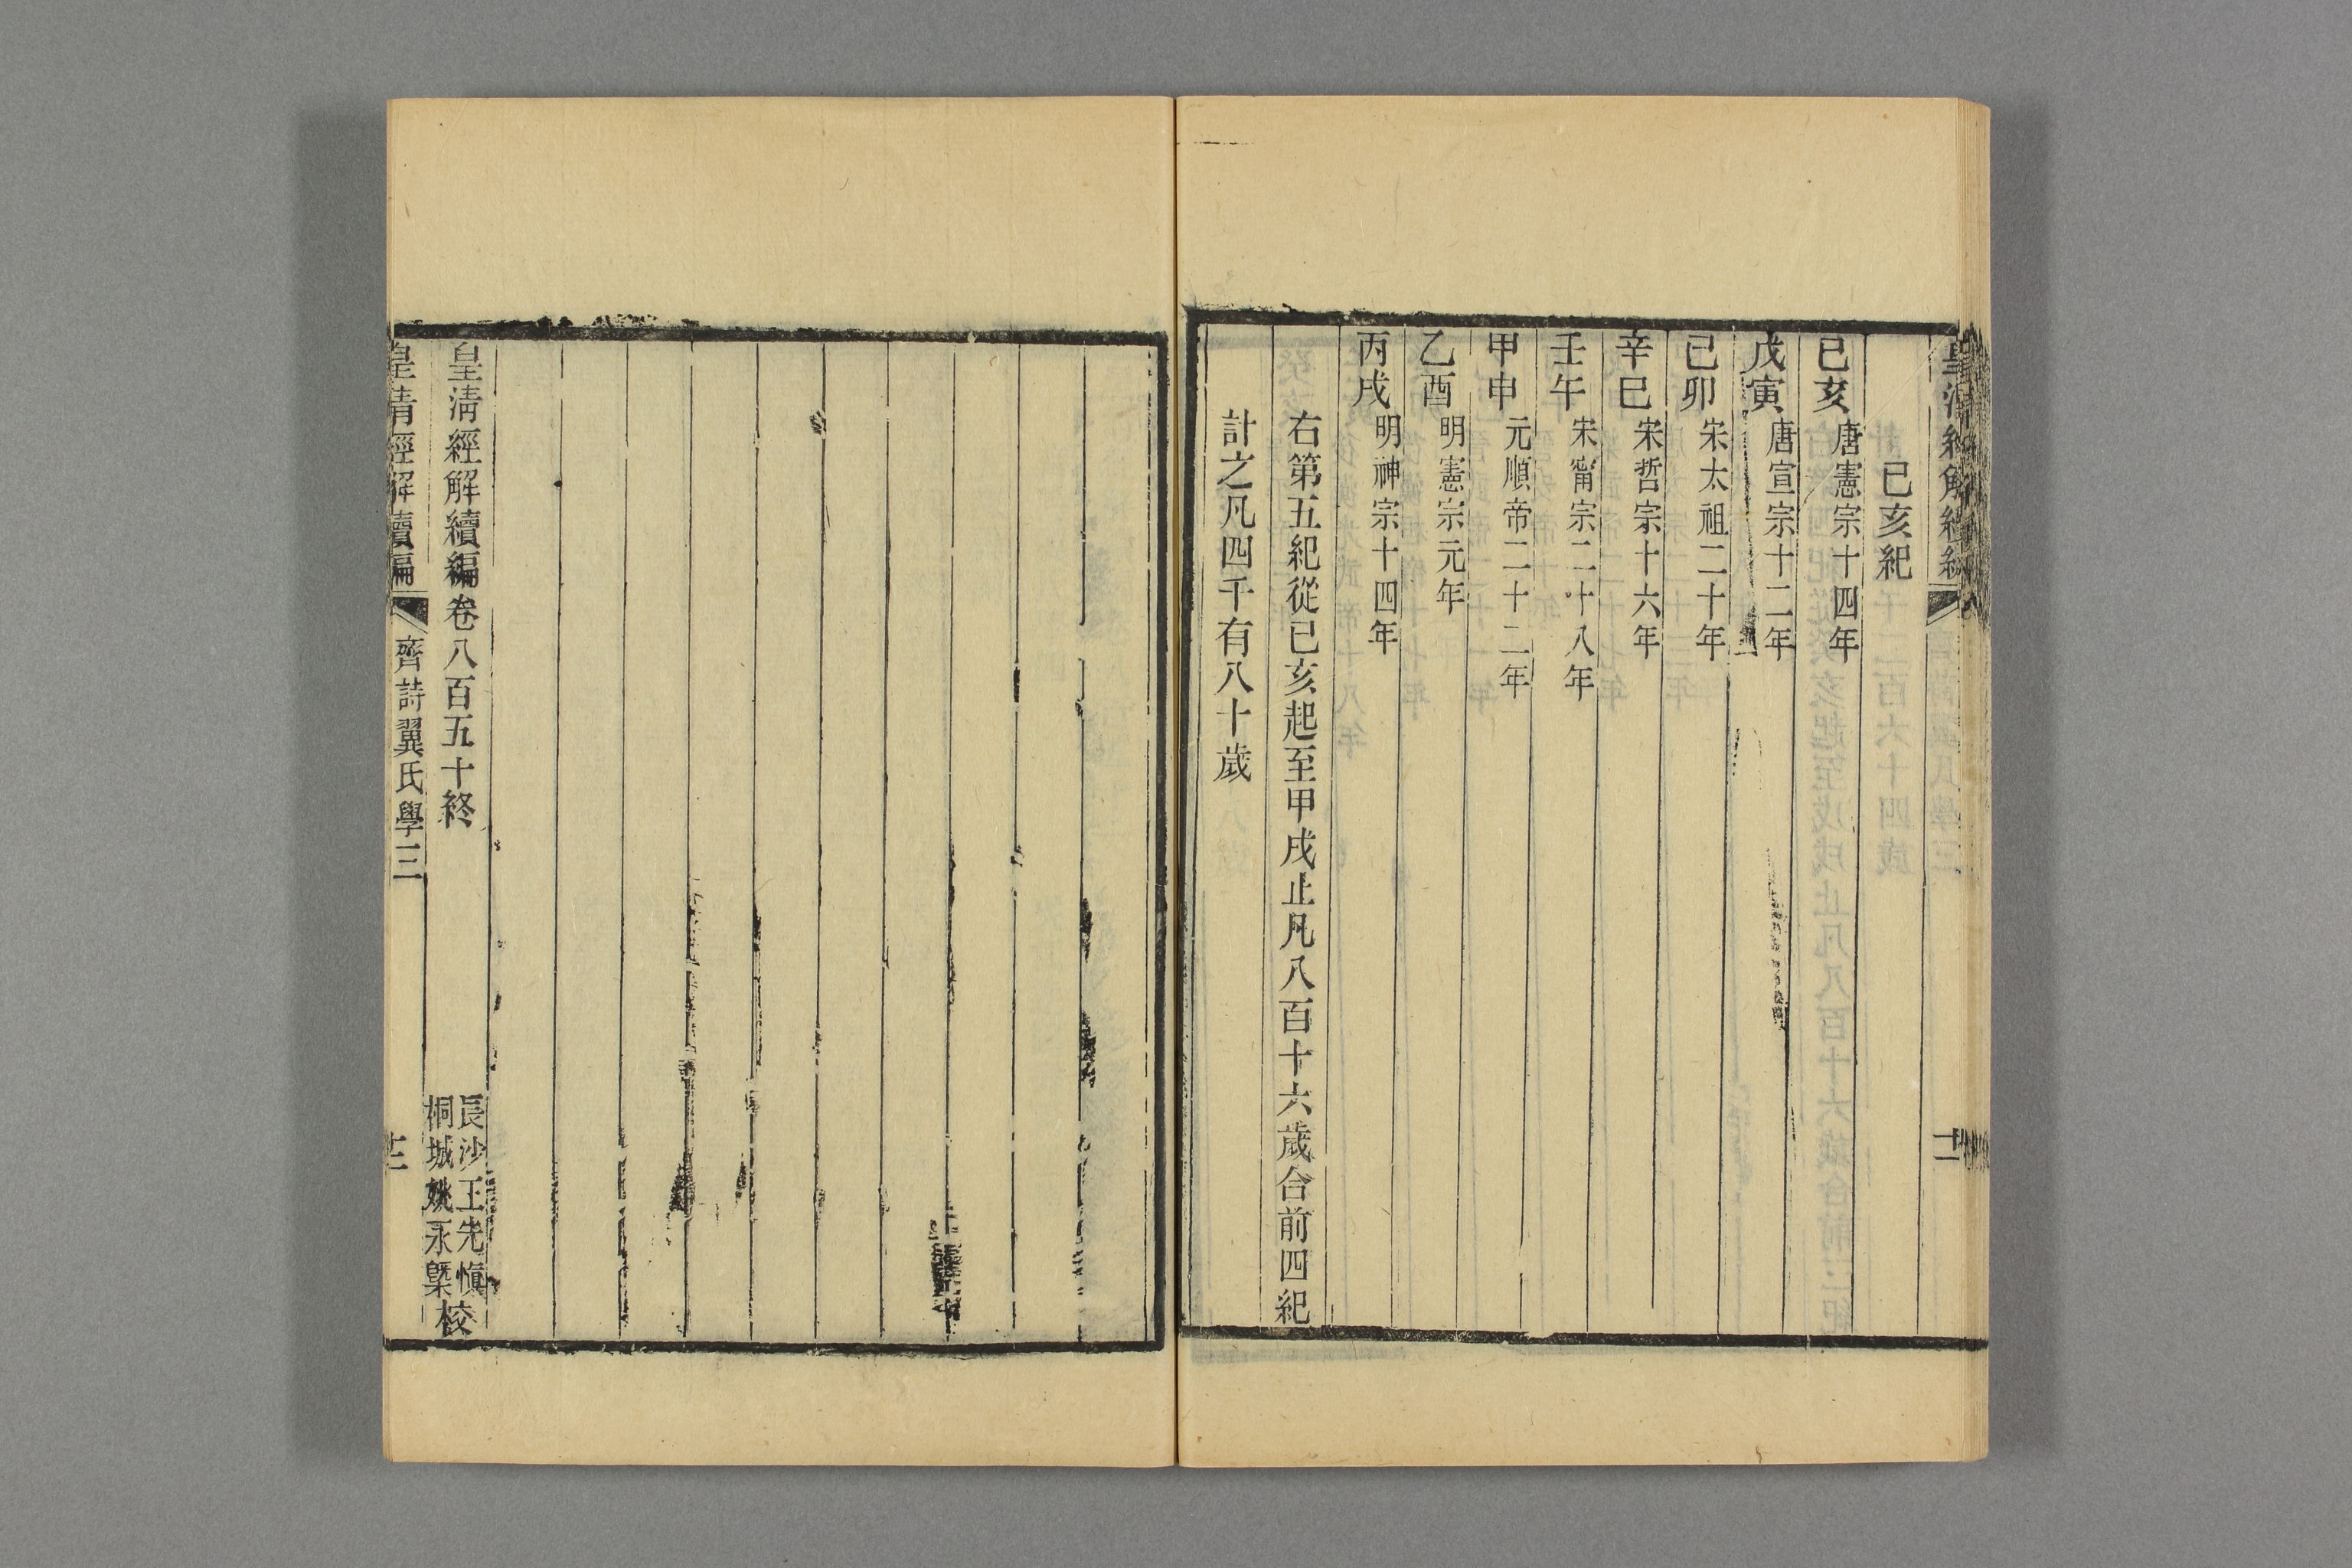 皇清經解續編
十二
己亥紀
己亥 唐憲宗十四年
戊寅 唐宣宗十二年
己卯 宋太祖二十年
辛巳 宋哲宗十六年
壬午 宋甯宗二十八年
甲申 元順帝二十二年
乙酉 明憲宗元年
丙戌 明神宗十四年
右第五紀從己亥起至甲戌止凡八百十六歲合前四紀
計之凡四千有八十歲
皇清經解續編卷八百五十終
長沙王先愼
桐城姚永㮣
校
皇清經解續編 齊詩翼氏學三